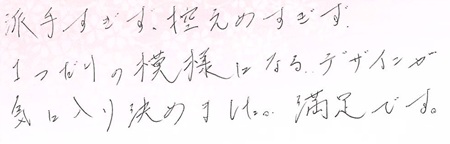 派手すぎず、控えめすぎず
1つだけの模様になるデザインが
気に入り決めました。満足です。